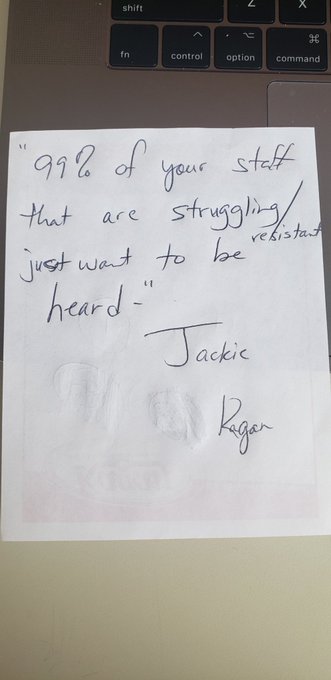 shift
Z
X
fn
^
control
⌥
option
⌘
command
"99% of your staff
that are struggling/
resistant
just want to be
heard-"
Jackie
Ragan